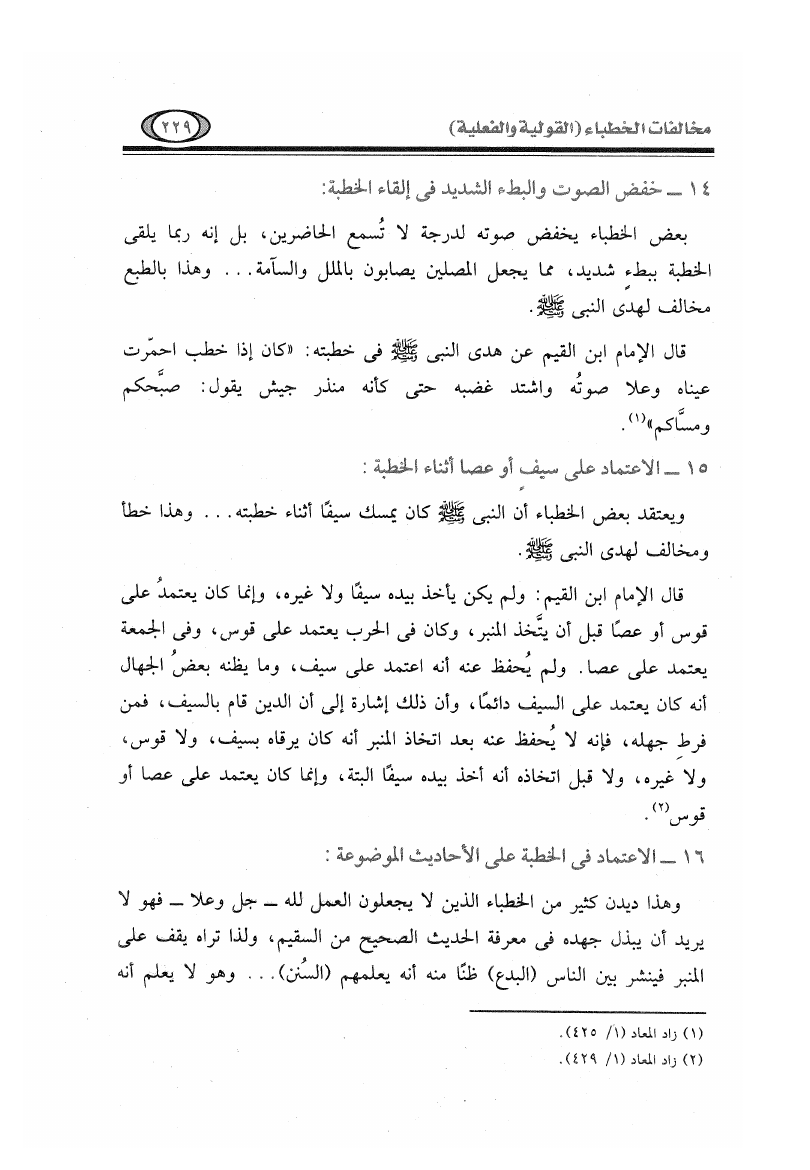 مخالفات الخطباء (القولية والفعلية)
٢٢٩
١٤ ـ خفض الصوت والبطء الشديد فى إلقاء الخطبة:
بعض الخطباء يخفض صوته لدرجة لا تُسمع الحاضرين، بل إنه ربما يلقى
الخطبة ببطءٍ شديد، مما يجعل المصلين يصابون بالملل والسآمة... وهذا بالطبع
مخالف لهدى النبى ﷺ.
قال الإمام ابن القيم عن هدى النبى ﷺ فى خطبته: «كان إذا خطب احمرّت
عيناه وعلا صوتُه واشتد غضبه حتى كأنه منذر جيش يقول: صبَّحكم
ومسَّاكم»(١).
١٥ ـ الاعتماد على سيفٍ أو عصا أثناء الخطبة :
ويعتقد بعض الخطباء أن النبى ﷺ كان يمسك سيفًا أثناء خطبته... وهذا خطأ
ومخالف لهدى النبى ﷺ.
قال الإمام ابن القيم: ولم يكن يأخذ بيده سيفًا ولا غيره، وإنما كان يعتمدُ على
قوس أو عصًا قبل أن يتَّخذ المنبر، وكان فى الحرب يعتمد على قوس، وفى الجمعة
يعتمد على عصا. ولم يُحفظ عنه أنه اعتمد على سيف، وما يظنه بعضُ الجهال
أنه كان يعتمد على السيف دائمًا، وأن ذلك إشارة إلى أن الدين قام بالسيف، فمن
فرطِ جهله، فإنه لا يُحفظ عنه بعد اتخاذ المنبر أنه كان يرقاه بسيف، ولا قوس،
ولا غيره، ولا قبل اتخاذه أنه أخذ بيده سيفًا البتة، وإنما كان يعتمد على عصا أو
قوس(٢).
١٦ ـ الاعتماد فى الخطبة على الأحاديث الموضوعة :
وهذا ديدن كثير من الخطباء الذين لا يجعلون العمل لله ـ جل وعلا ـ فهو لا
يريد أن يبذل جهده فى معرفة الحديث الصحيح من السقيم، ولذا تراه يقف على
المنبر فينشر بين الناس (البدع) ظنًا منه أنه يعلمهم (السُنن)... وهو لا يعلم أنه
(١) زاد المعاد (١/ ٤٢٥).
(٢) زاد المعاد (١/ ٤٢٩).